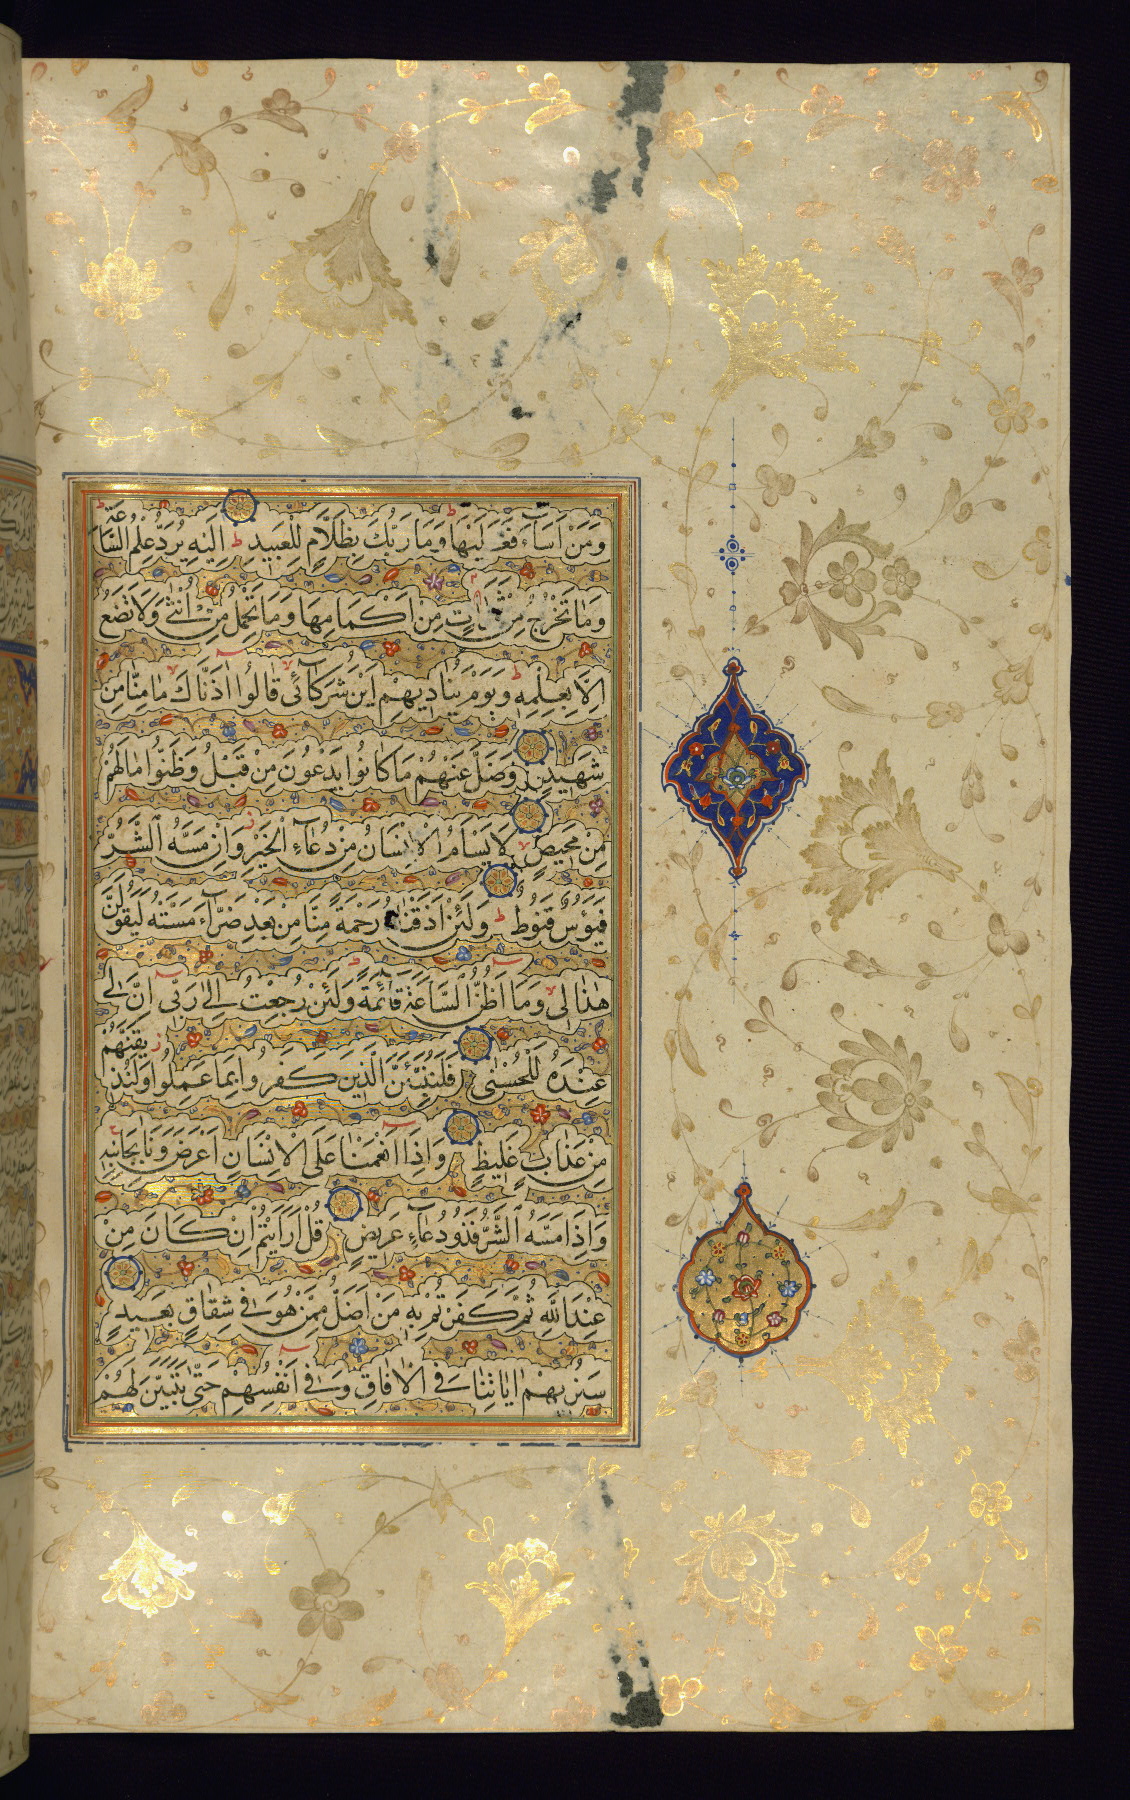 وَمَنْ اَسَآءَ فَعَلَيْهَا وَمَا رَبُّكَ بِظَلَّامٍ لِلْعَبِيدِ ط اِلَيْهِ يُرَدُّ عِلْمُ السَّاعَةِ
وَمَا تَخْرُجُ مِنْ ثَمَرَاتٍ مِنْ اَكْمَامِهَا وَمَا تَحْمِلُ مِنْ اُنْثٰى وَلَا تَضَعُ
اِلَّا بِعِلْمِهِ ط وَيَوْمَ يُنَادِيهِمْ اَيْنَ شُرَكَآئِى قَالُوا اٰذَنَّاكَ مَا مِنَّا مِنْ
شَهِيدٍ وَضَلَّ عَنْهُمْ مَا كَانُوا يَدْعُونَ مِنْ قَبْلُ وَظَنُّوا مَا لَهُمْ
مِنْ مَحِيصٍ لَا يَسْاَمُ الْاِنْسَانُ مِنْ دُعَآءِ الْخَيْرِ ز وَاِنْ مَسَّهُ الشَّرُّ
فَيَؤُسٌ قَنُوطٌ ط وَلَئِنْ اَذَقْنَاهُ رَحْمَةً مِنَّا مِنْ بَعْدِ ضَرَّآءَ مَسَّتْهُ لَيَقُولَنَّ
هٰذَا لِى لا وَمَا اَظُنُّ السَّاعَةَ قَآئِمَةً وَلَئِنْ رُجِعْتُ اِلٰى رَبّى اِنَّ لِى
عِنْدَهُ لَلْحُسْنٰى فَلَنُنَبِّئَنَّ الَّذِينَ كَفَرُوا بِمَا عَمِلُوا وَلَنُذِيقَنَّهُمْ
مِنْ عَذَابٍ غَلِيظٍ وَاِذَا اَنْعَمْنَا عَلَى الْاِنْسَانِ اَعْرَضَ وَنَاٰ بِجَانِبِهِ
وَاِذَا مَسَّهُ الشَّرُّ فَذُو دُعَآءٍ عَرِيضٍ قُلْ اَرَاَيْتُمْ اِنْ كَانَ مِنْ
عِنْدِ اللّٰهِ ثُمَّ كَفَرْتُمْ بِهِ مَنْ اَضَلُّ مِمَّنْ هُوَ فِى شِقَاقٍ بَعِيدٍ
سَنُرِيهِمْ اٰيَاتِنَا فِى الْاٰفَاقِ وَفِى اَنْفُسِهِمْ حَتّٰى يَتَبَيَّنَ لَهُمْ